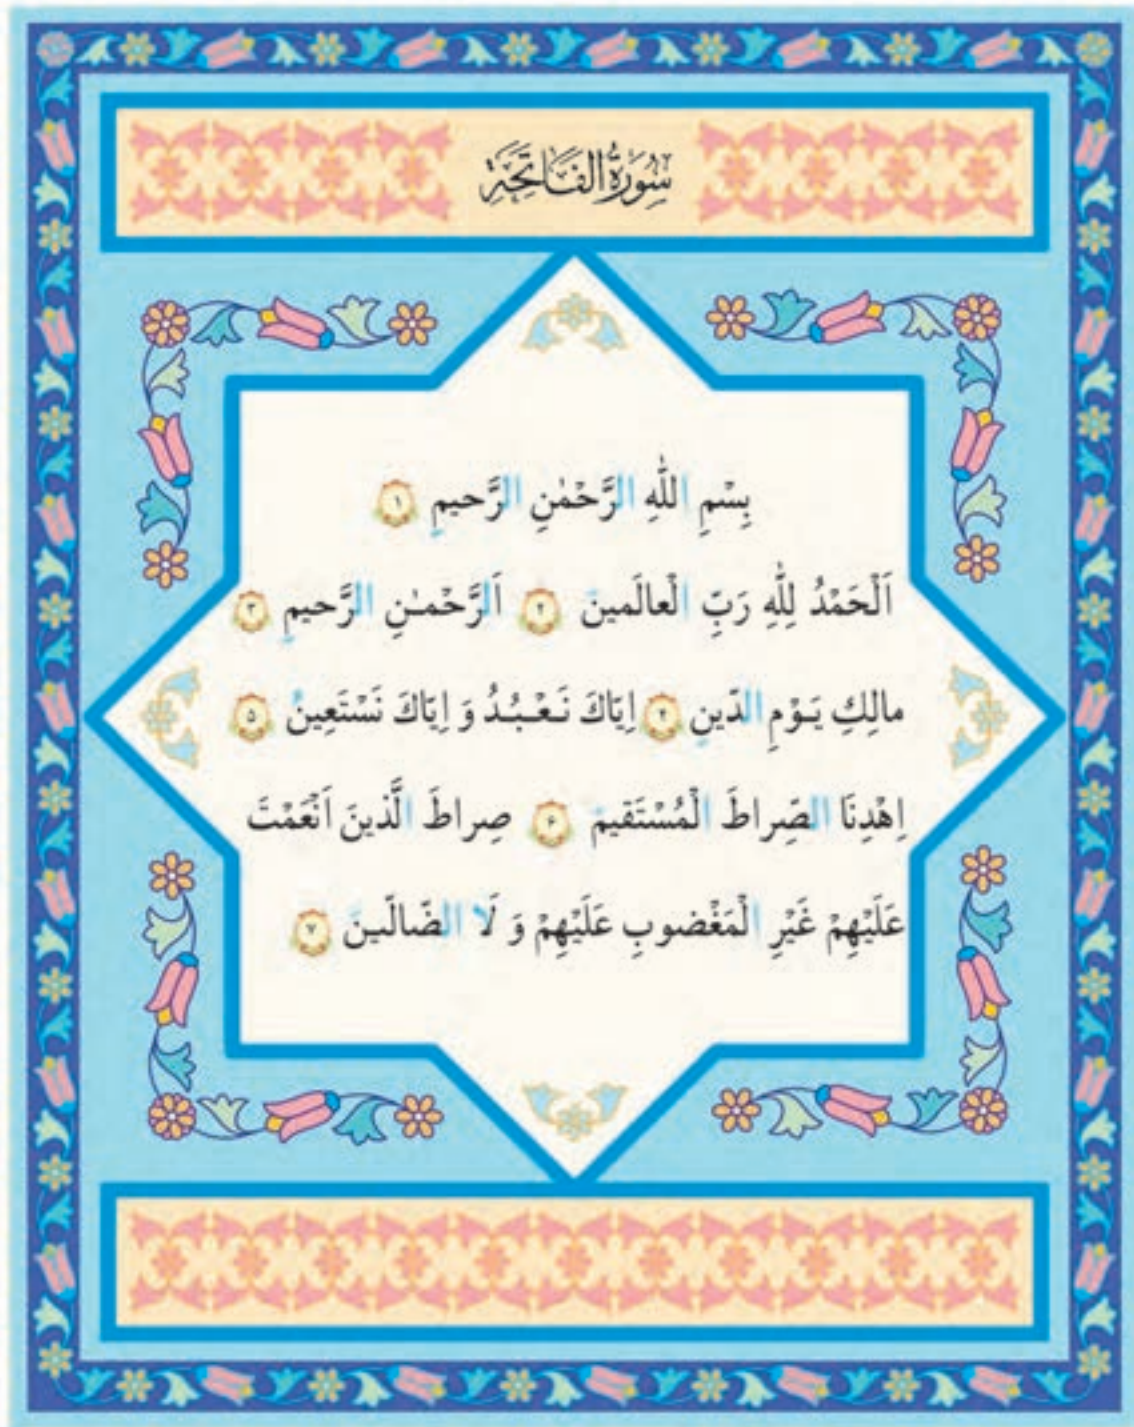 سُورَةُ الْفَاتِحَةِ
بِسْمِ اللّٰهِ الرَّحْمٰنِ الرَّحیمِ ﴿١﴾
اَلْحَمْدُ لِلّٰهِ رَبِّ الْعالَمینَ ﴿٢﴾ اَلرَّحْمـٰنِ الرَّحیمِ ﴿٣﴾
مالِكِ یَـوْمِ الدّینِ ﴿۴﴾ اِیّاكَ نَـعْـبُـدُ وَ اِیّاكَ نَسْتَعینُ ﴿۵﴾
اِهْدِنَا الصِّراطَ الْمُسْتَقیمَ ﴿۶﴾ صِراطَ الَّذینَ اَنْعَمْتَ
عَلَیْهِمْ غَیْرِ الْمَغْضوبِ عَلَیْهِمْ وَ لَا الضّالّینَ ﴿٧﴾